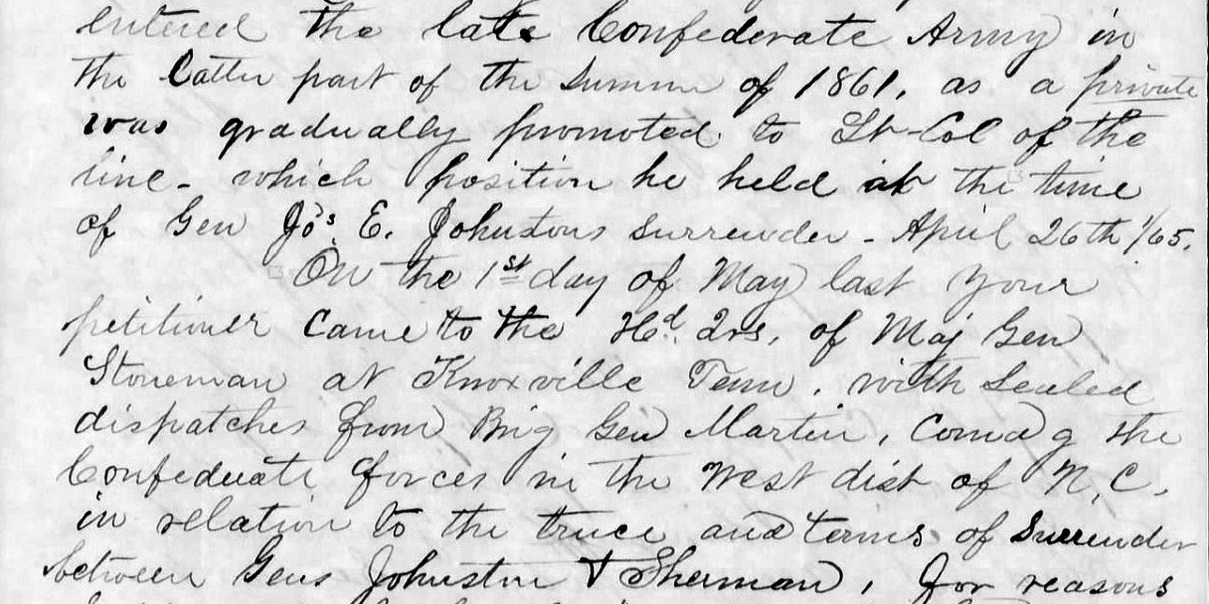 entered the late Confederate Army in
the latter part of the Summer of 1861, as a private
was gradually promoted to Lt-Col of the
line - which position he held at the time
of Gen Jos E. Johnstons Surrender - April 26th 1/65.
On the 1st day of May last your
petitioner came to the Hd. Qrs, of Maj Gen
Stoneman at Knoxville Tenn, with Sealed
dispatches from Brig Gen Martin, Comdg the
Confederate forces in the West dist of N, C,
in relation to the truce and terms of Surrender
between Gens Johnston & Sherman, for reasons